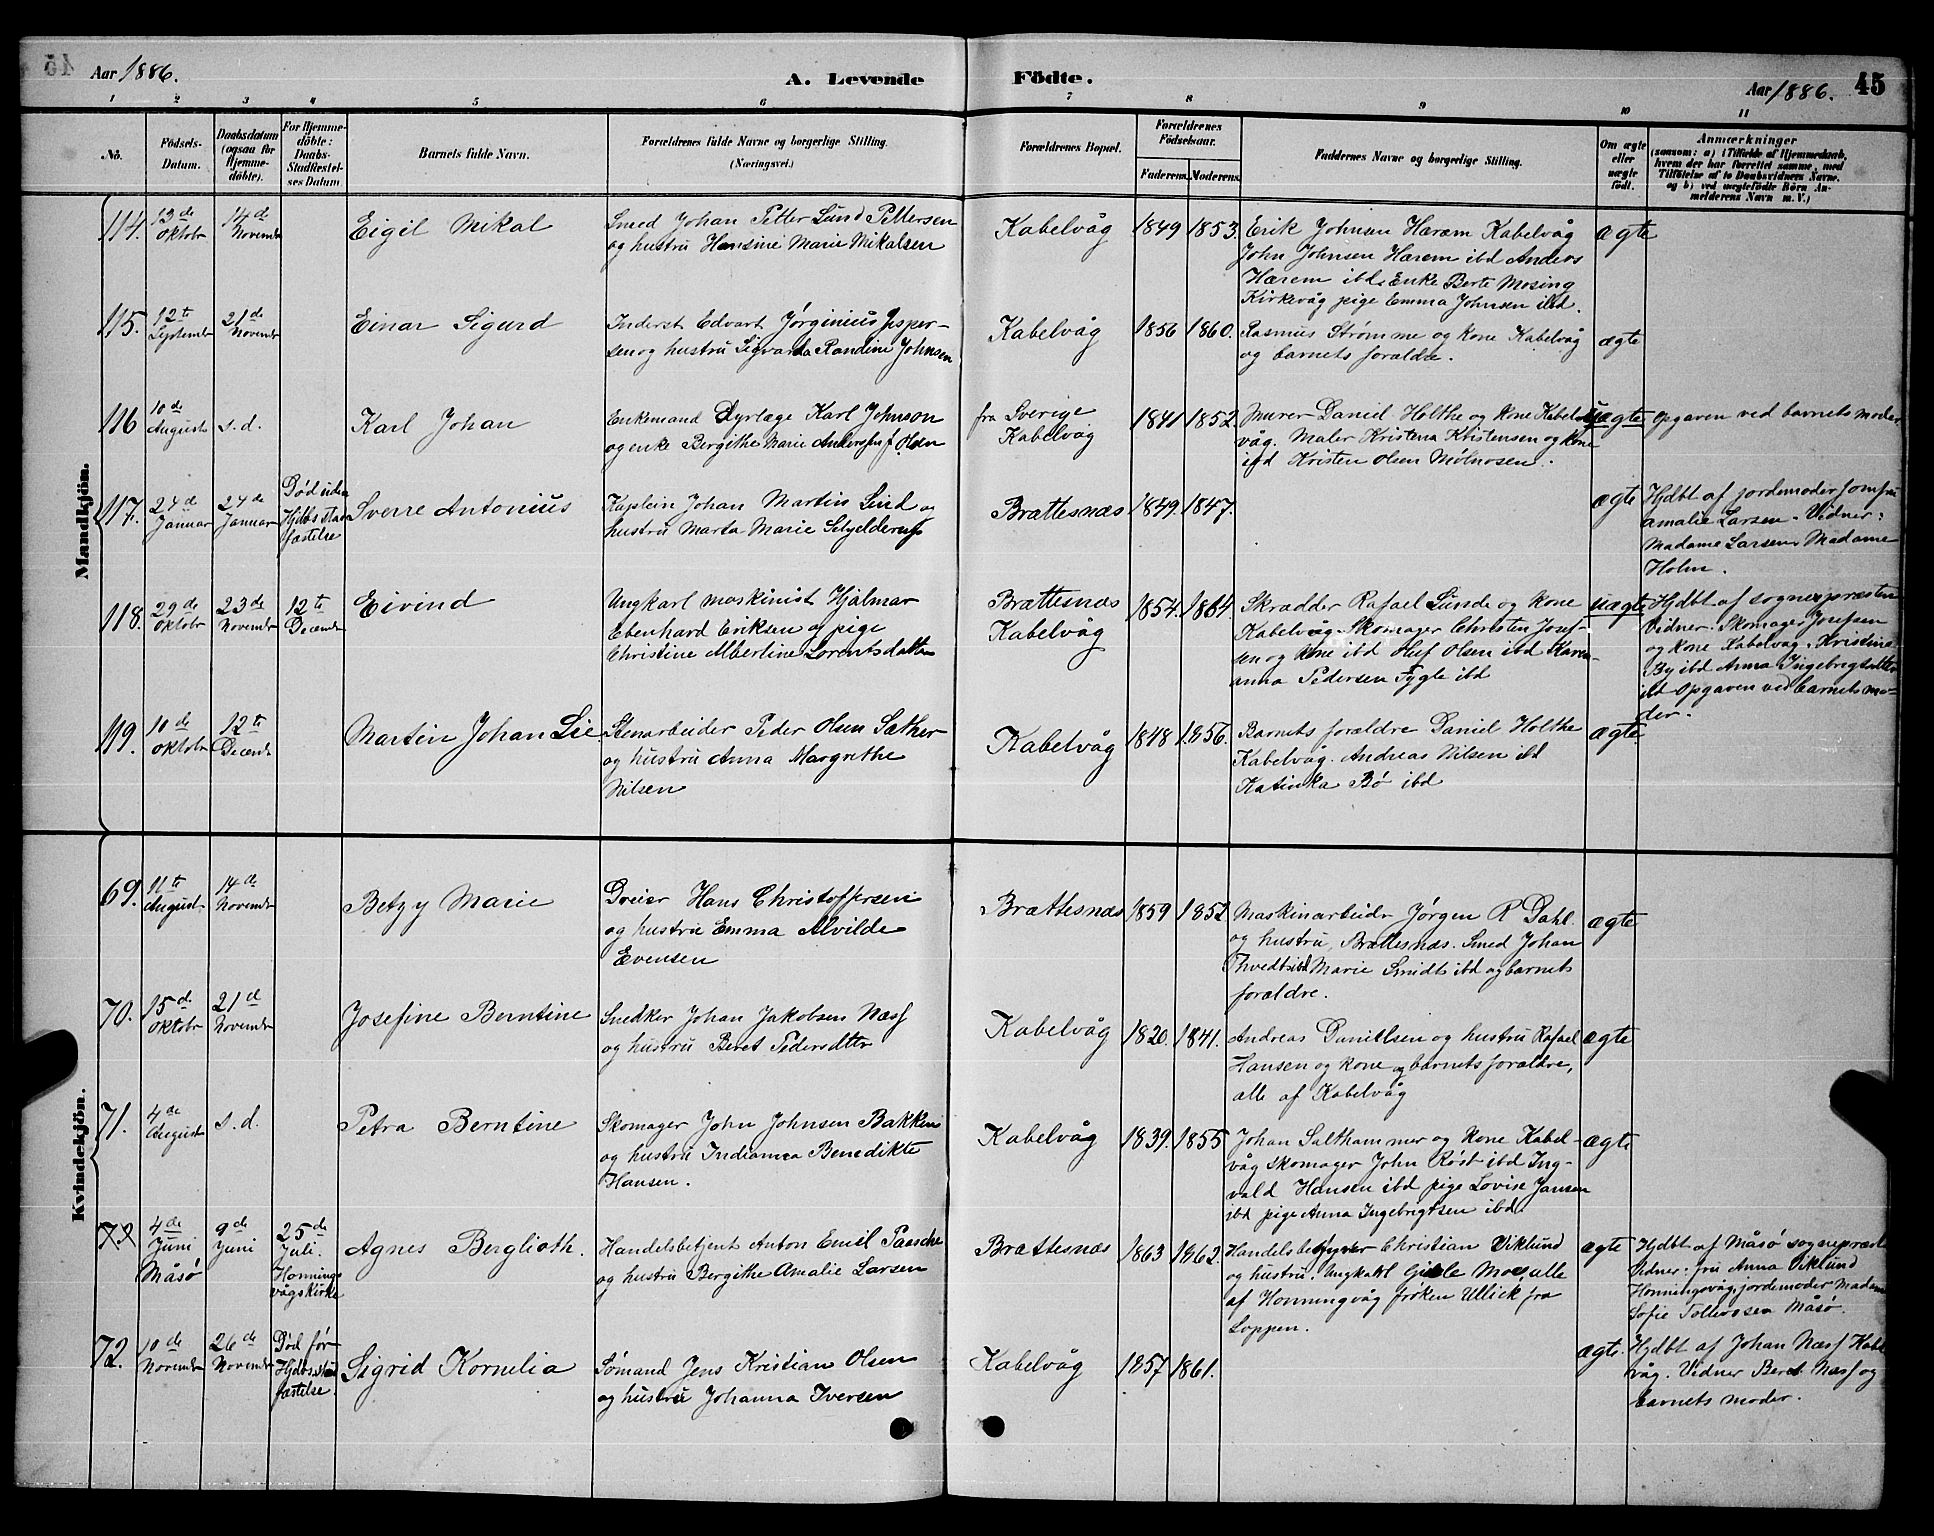 45
Aar 1886.
A. Levende Födte.
Aar 1886. 45
1 2 3 4 5 6 7 8 9 10 11
No.
Födsels-
Datum.
Daabsdatum
(ogsaa for
Hjemme-
döbte).
For Hjemme-
döbte:
Daabs-
Stadfæstel-
ses Datum
Barnets fulde Navn.
Forældrenes fulde Navne og borgerlige Stilling.
(Næringsvei.)
Forældrenes Bopæl.
Forældrenes
Födselsaar.
Faderens. Moderens.
Faddernes Navne og borgerlige Stilling.
Om ægte
eller
uægte
födt.
Anmærkninger
(saasom: a) i Tilfælde af Hjemmedaab,
hvem der har forrettet samme, med
Tilföielse af to Daabsvidners Navne.
og b) ved uægtefödte Börn An-
melderens Navn m. V.)
Mandkjön.
114.
13de
Oktobr
14d
Novembr
Eigil Mikal
Smed Johan Petter Lund Pettersen
og hustru Hansine Marie Mikalsen
Kabelvåg
1849 1853.
Erik Johnsen Harem Kabelvåg
John Johnsen Harem ibd Andeas
Harem ibd. Enke Berte Mosing
Kirkevåg pige Emma Johnsen ibd.
ægte
115.
12te
Septembr
21de
Novembr
Einar Sigurd
Inderst Edvart Jørginius Jesper-
sen og hustru Sigvarda Randine Johnsen
Kabelvåg
1856 1860.
Rasmus Strømme og kone Kabelvåg
og barnets forældre.
ægte
116
10de
August
s.d.
Karl Johan
Enkemand Dyrlæge Karl Johnson
og enke Bergithe Marie Anders f. Olsen
fra Sverige
Kabelvåg
1841 1852.
Murer Daniel Holthe og kone Kabel-
våg. Maler Kristena Kristensen og kone
ibd Kristen Olsen Mølnosen.
uægte
Opgaven ved barnets moder
117.
24d
Januar
24de
Januar
Død uden
Hjdbs stad-
fæstelse
Sverre Antonius
Kaptein Johan Martin Lind og
hustru Marta Marie Schjelderup
Brættesnæs
1849. 1847.
ægte
Hjdbt af jordemoder jomfru
Amalie Larsen. Vidner:
Madame Larsen. Madame
Holm.
118.
29de
Oktobr
23de
Novembr
12te
Decembr
Eivind
Ungkarl maskinist Hjalmar
Ebenhard Eriksen og pige
Christine Albertine Lorentsdatter
Brættesnæs
Kabelvåg
1854. 1864.
Skrædder Rafael Lunde og kone
Kabelvåg. Skomager Christen Josef-
sen og kone ibd Oluf Olsen ibd Karen-
anna Pedersen Fygle ibd
uægte
Hjdbt af sognepræsten
Vidner. Skomager Josefsen
og kone Kabelvåg. Kristine
By ibd Anna Ingebregtsdttr
ibd Opgaven ved barnets mo-
der.
119.
10de
Oktobr
12te
Decembr
Martin Johan Lie
Stenarbeider Peder Olsen Sæther
og hustru Anna Margrethe
Nilsen
Kabelvåg
1848 1856.
Barnets forældre Daniel Holthe
Kabelvåg. Andreas Nilsen ibd
Katinka Bø ibd
ægte
Kvindekjön.
69.
11te
August
14de
Novembr
Betzy Marie
Dreier Hans Christoffersen
og hustru Emma Alvilde
Evensen
Brættesnæs
1859 1852
Maskinarbeidr Jørgen R Dahl.
og hustru, Brættesnæs. Smed Johan
Thvedt ibd Marie Smidt ibd og barnets
forældre.
ægte
70.
15d.
Oktobr
21d
Novembr
Josefine Berntine
Snedker Johan Jakobsen Næss
og hustru Beret Pedersdttr
Kabelvåg
1820. 1841.
Andreas Daniellsen og hustru Rafael
Hansen og kone og barnets forældre,
alle af Kabelvåg
ægte
71.
4de
August
s.d.
Petra Berntine
Skomager John Johnsen Bakken
og hustru Indianna Benedikte
Hansen.
Kabelvåg
1839. 1855
Johan Salthammer og kone Kabel-
våg skomager John Røst ibd Ing-
vald Hansen ibd pige Lovise Jansen
ibd pige Anna Ingebrigtsen ibd.
ægte
4de
Juni
Måsø
9de
Juni
25de
Juli.
Honnings
vågs kirke
Agnes Berglioth.
Handelsbetjent Anton Emil Paasche
og hustru Bergithe Amalie Larsen
Brættesnæs
1863 1862.
Handelsbestyrer Christian Viklund
og hustru. Ungkarl Gisle Moe, alle
af Honningvåg frøken Ullick fra
Loppen.
ægte
Hjdbt af Måsø sognepræst
Vidner: fru Anna Viklund
Honningsvåg jordemoder Madam
Sofie Tollevosen Måsø.
72.
10de
Novembr
26de
Novembr
Død før
Hjdbs stad-
fæstelse
Sigrid Kornelia
Sømand Jens Kristian Olsen
og hustru Johanna Iversen
Kabelvåg
1857 1861.
ægte.
Hjdbt af Johan Næss Kabel
våg. Vidner Beret Næss og
barnets moder.